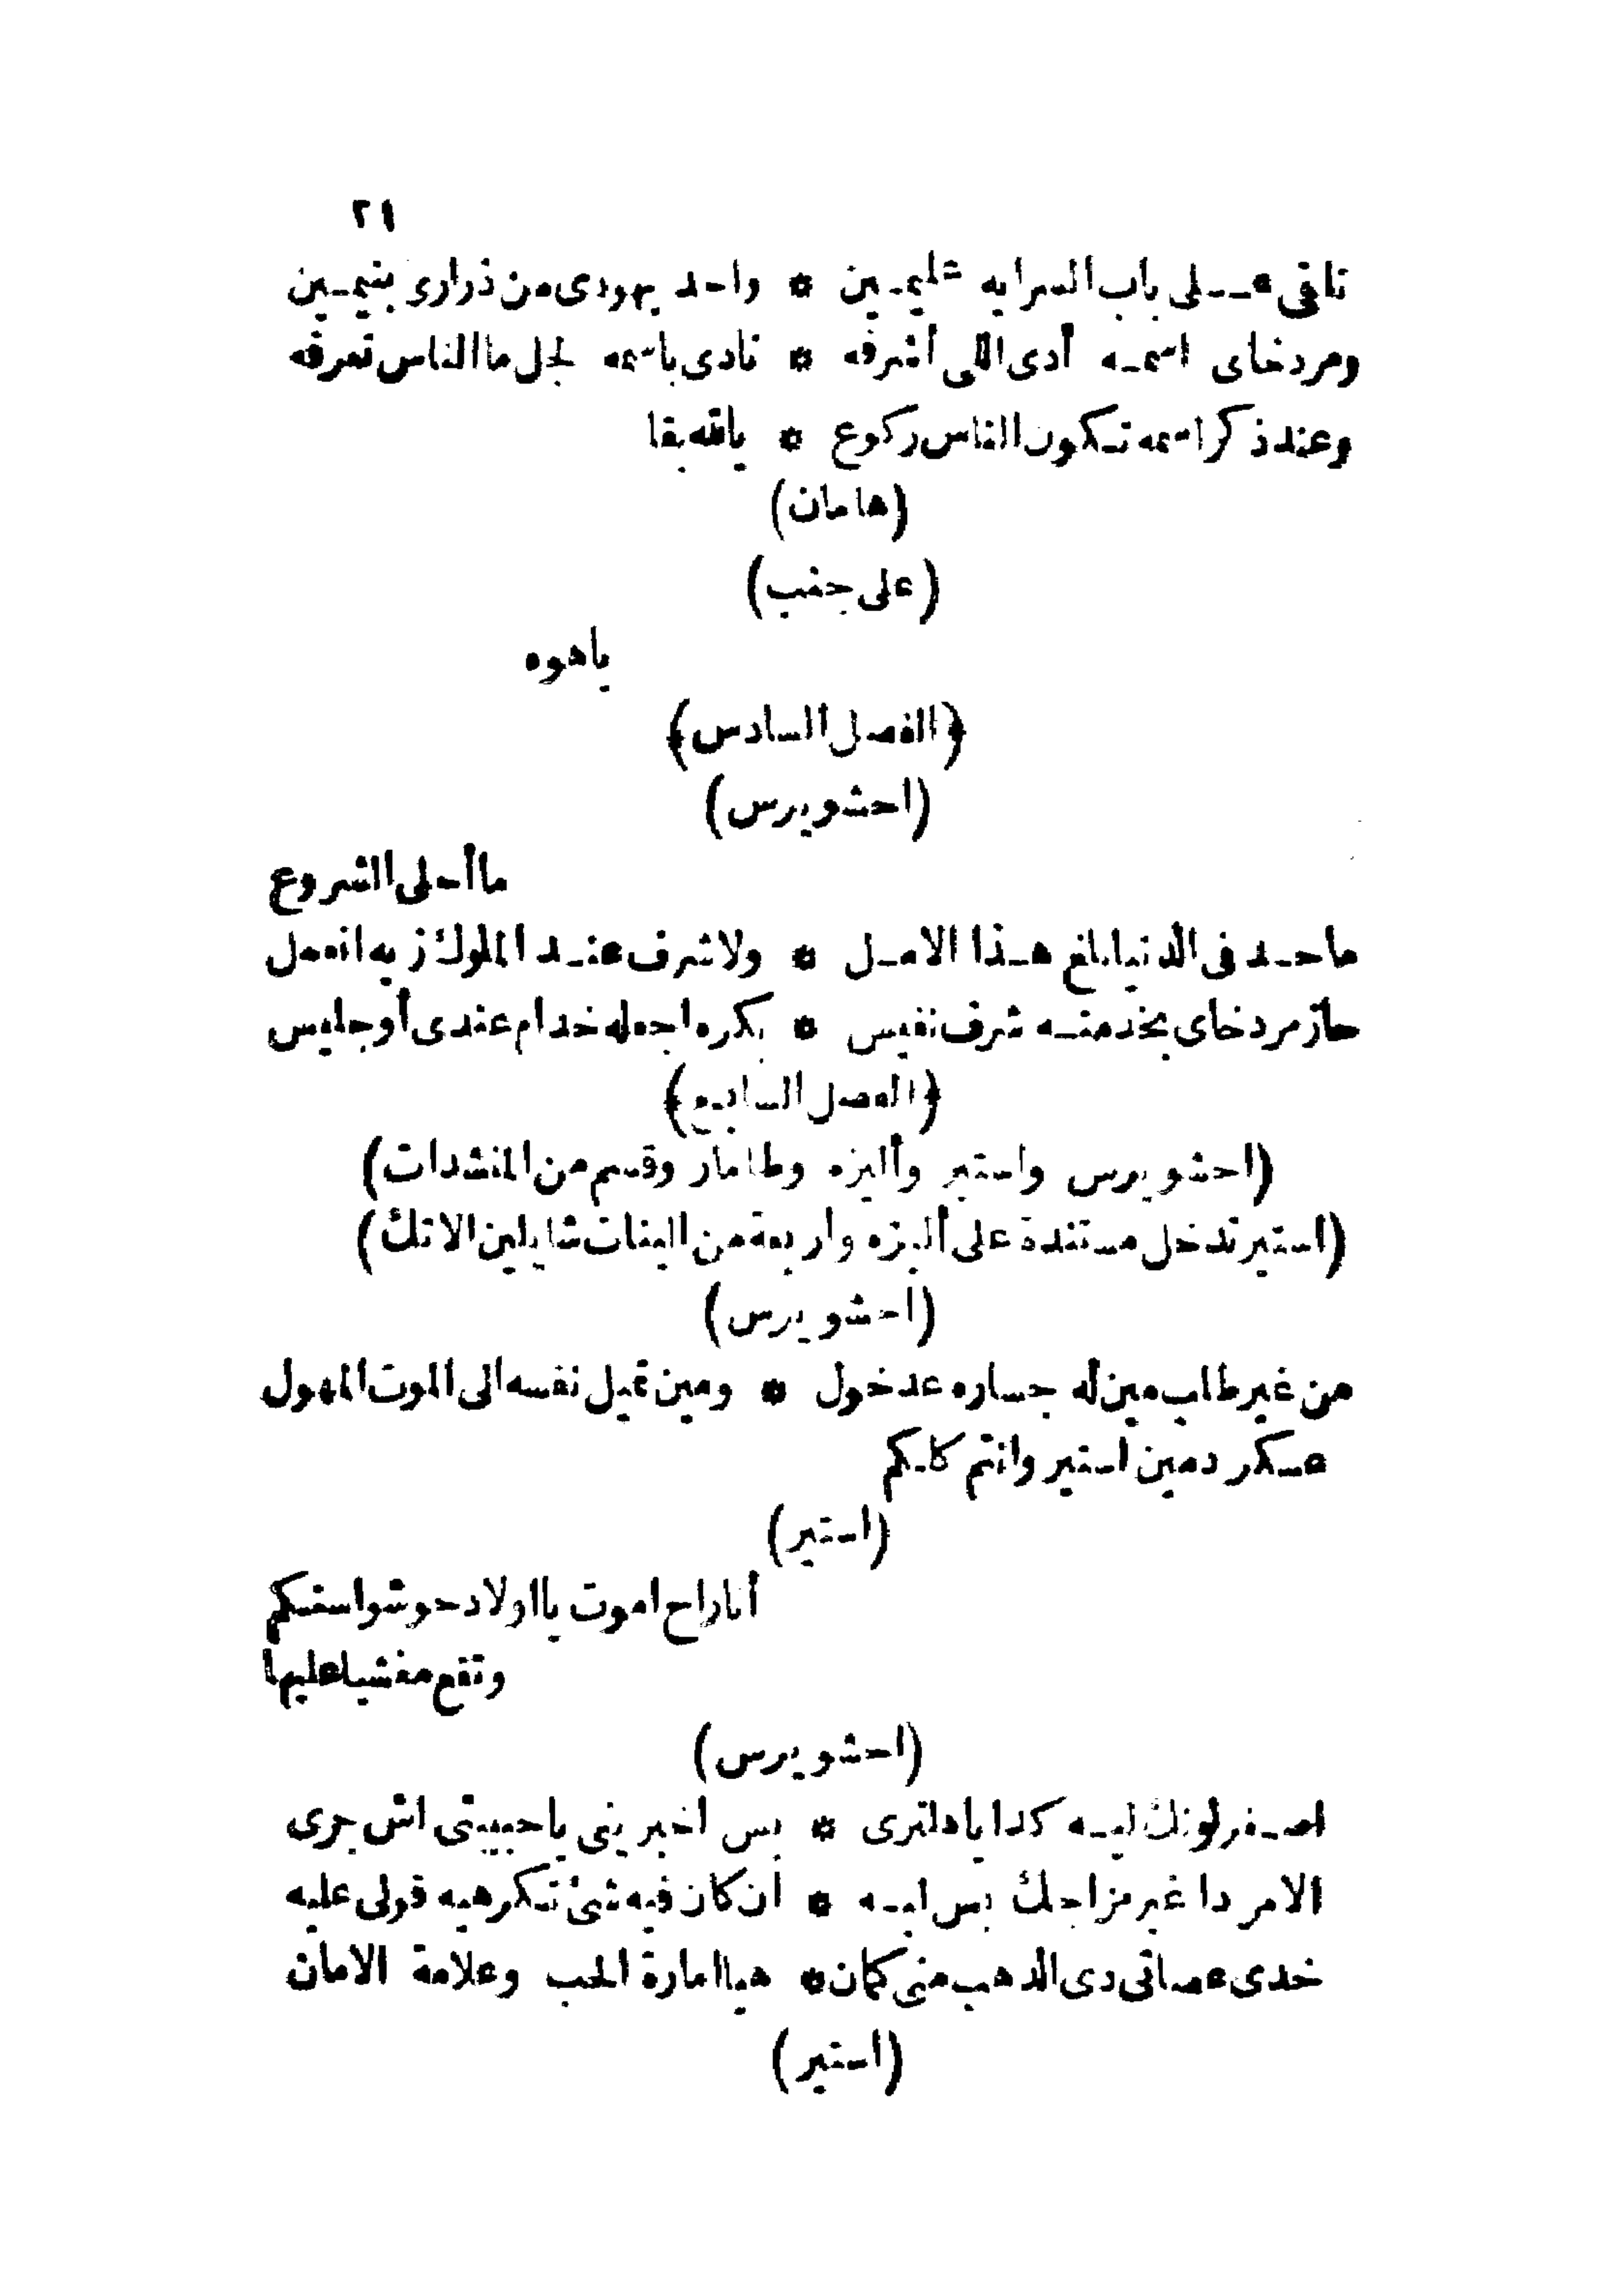 ٢١
تلقى على باب السرايه عليمين * واحد يهودى من ذرارى بنيمين
ومردخاى اسمه أدى اللى أشرفه * نادى باسمه لجل ما الناس تعرفه
وعند ذكر اسمه تكون الناس ركوع * يالله بقا
(هامان)
(على جنب)
ياهوه
﴿الفصل السادس﴾
(احشويرس)
ما أحلى الشروع
ماحد فى الدنيا بلغ هذا الامل * ولا شرف عند الملوك زيه انعمل
حاز مردخاى بخدمته شرف نفيس * بكره اجعله خدام عندى أو جليس
﴿الفصل السابع﴾
(احشويرس واستير وأليزه وطامار وقسم من المنشدات)
(استير تدخل مستندة على أليزه واربعة من البنات شايلين الاتك)
(احشويرس)
من غير طلب مين له جساره عدخول * ومين تميل نفسه الى الموت المهول
عسكر دمين استير وانتم كلكم
(استير)
أنا راح اموت يا اولاد حوشوا ستكم
وتقع مغشيا عليها
(احشويرس)
اصفر لونك ليه كدا ياهلترى * بس اخبرينى ياحبيبتى اش جرى
الامر دا غير مزاجك بس ليه * ان كان فيه شئ تكرهيه قولى عليه
خدى عصاتى دى الدهب منى كمان * هيا امارة الحب وعلامة الامان
(استير)